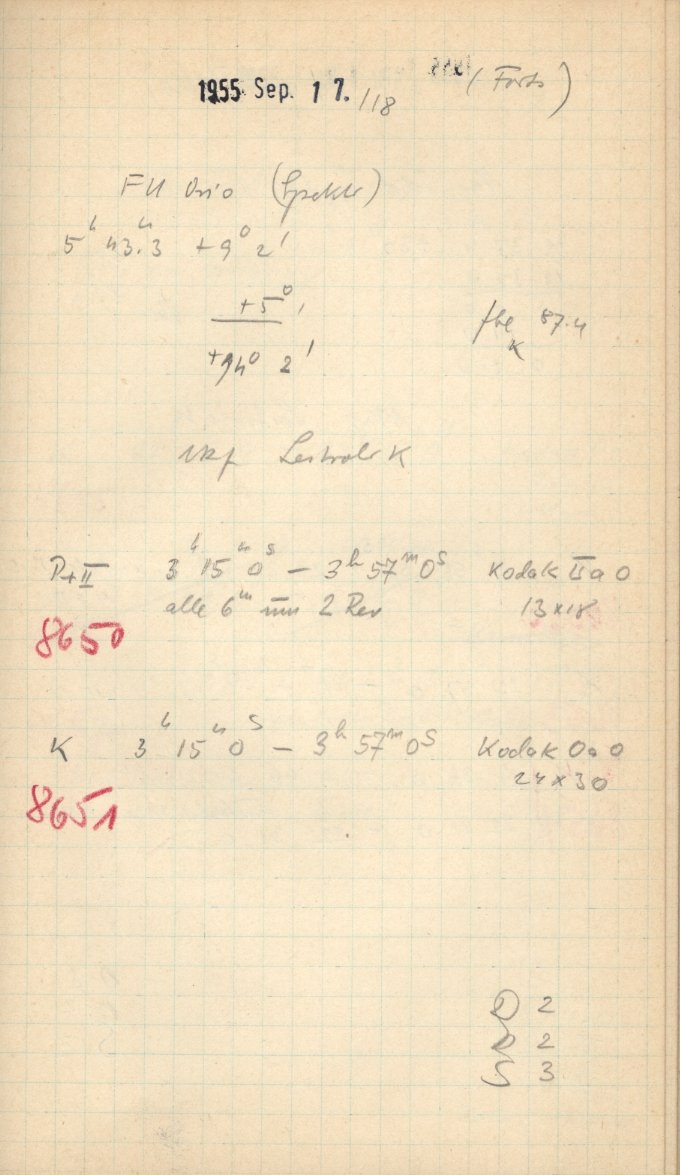 1955 Sep. 17./18 (Forts)
FU Orio (Spektr)
5h 43m.3 +9° 2'
+5° '
+94° 2'
fbl 87.4
K
Leitrohr K
P+II 3h 15m 0s — 3h 57m 0s Kodak IIa O
alle 6m um 2 Rev 13x18
8650
K 3h 15m 0s — 3h 57m 0s Kodak Oa O
24x30
8651
D 2
D 2
S 3